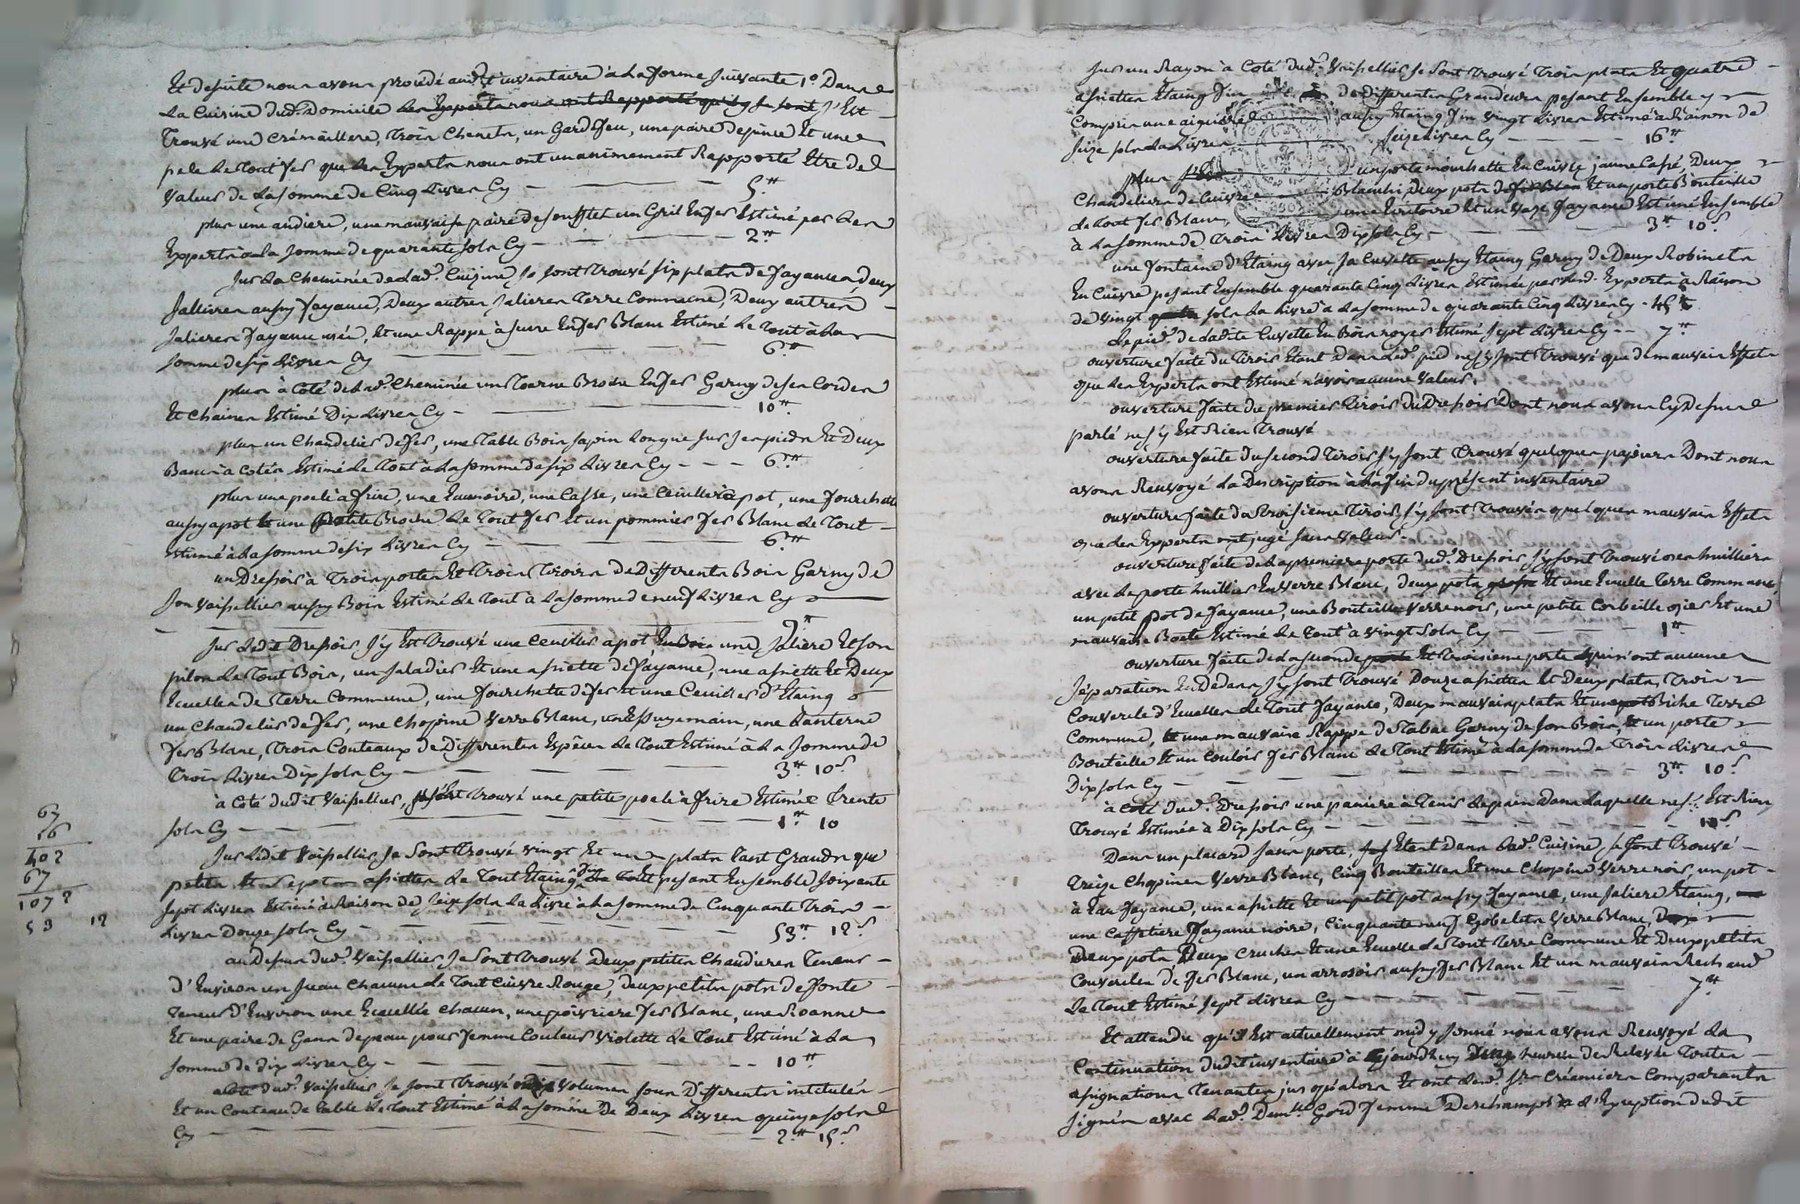 Et desuite nous avons procédé aud.t inventaire à la forme suivante 1.o Dans
La Cuisine dud. Domicile les Experts nous ont Rapporté qu'il y se sont s'Est
Trouvé une Crémaillere, Trois Chenets, un Gard feu, une paire depince Et une
pele le tout fer que les Experts nous ont unanimement Rapporté Etre de la
Valeur de La somme de Cinq Livres Cy — 5.tt
plus une andiere, une mauvaise paire de soufflet un Gril En fer Estimé par les
Experts a la somme de quarante sols Cy — 2.tt
Sur la Cheminée de lad.e Cuizine se sont trouvé six plats de fayance, deux
Sallieres aussy fayance, Deux autres salieres Terre Commune, Deux autres
salieres fayance usée, Et une Rappe à sucre En fer Blanc Estimé le Tout à la
somme de six Livres Cy — 6.tt
plus à Coté de lad.e Cheminée un Tourne Broche En fer Garny de ses Cordes
Et Chaines Estimé Dix Livres Cy — 10.tt
plus un Chandelier de fer, une Table Bois sapin Longue sur ses pieds Et Deux
Bancs à Cotés Estimé le Tout à la somme de six Livres Cy — 6.tt
plus une poele à frire, une Ecumoire, une Casse, une Ceuillere à pot, une fourchette
aussy à pot Et une petite Broche le Tout fer Et un pommier fer Blanc le Tout
Estimé à la somme de six Livres Cy — 6.tt
un Dressoir à Trois portes Et Trois Tiroirs de Differents Bois Garny de
son Vaissellier aussy Bois Estimé le Tout à la somme de neuf Livres Cy —
9.tt
Sur Ledit Dressoir s'y Est trouvé une Ceuiller à pot, En Bois une Saliere Et son
pilon le Tout Bois, un saladier Et une assiette de fayance, une assiette Et Deux
Ecuelles de Terre Commune, une fourchette de fer Et une Ceuiller d'Etaing
un Chandelier de fer, une Chopine Verre Blanc, un Essuyemain, une Lanterne
fer Blanc, Trois Couteaux de Differentes Espèces le Tout Estimé à la somme de
Trois Livres Dix sols Cy — 3.tt 10.s
à Coté dudit Vaissellier, s'est trouvé une petite poele à frire Estimée Trente
sols Cy — 1.tt 10
Sur Ledit Vaissellier se sont Trouvé vingt Et un plats tant Grands que
petits Et assiettes le Tout Etaing pesant Ensemble soixante
sept Livres Estimé à Raison de seize sols la Livre à la somme de Cinquante Trois
Livres Douze sols Cy — 53.tt 12.s
67
16
402
67
1072
53 12
au Dessus dud.t Vaissellier se sont Trouvé Deux petites Chaudieres Teneur
d'Environ un seau chacune le Tout Cuivre Rouge, deux petits pots de fonte
Teneur d'Environ une Ecuellée chacun, une poivriere fer Blanc, une Roanne
Et une paire de Gans de peau pour femme Couleur Violette le Tout Estimé à la
somme de dix Livres Cy — 10.tt
à Coté dud.t Vaissellier se sont trouvé Volumes sous Differents intitulés
Et un Couteau de Table le Tout Estimé à la somme de Deux Livres quinze sols
Cy — 2.tt 15.s
Sur un Rayon à Coté dud.t Vaissellier se sont trouvé Trois plats Et quatre
assiettes Etaing fin de Differentes Grandeurs pesant Ensemble y
Compris une aiguiere aussy Etaing fin vingt Livres Estimé à Raison de
seize sols la Livre seize Livres Cy — 16.tt
plus un porte mouchette En Cuivre jaune Cassé Deux
Chandeliers de Cuivre Blanchi, deux pots de fer Blanc Et un porte Bouteille
le Tout fer Blanc, une Ecritoire Et un Vaze fayance Estimé Ensemble
à la somme de Trois Livres Dix sols Cy — 3.tt 10.s
une fontaine d'Etaing avec sa Cuvette aussy Etaing Garny de Deux Robinets
En Cuivre pesant Ensemble quarante Cinq Livres Estimée par lesd. Experts à Raison
de vingt sols la Livre à la somme de quarante Cinq Livres Cy - 45.tt
Le pied de ladite Cuvette En Bois noyer Estimé sept Livres Cy — 7.tt
ouverture faite du Tiroir Etant Dans led. pied ne s'y sont trouvé que de mauvais Effets
que les Experts ont Estimé n'avoir aucune Valeur.
ouverture faite du premier Tiroir du Dressoir Dont nous avons Cy Dessus
parlé ne s'y Est Rien Trouvé
ouverture faite du second Tiroir s'y sont Trouvé quelques papiers Dont nous
avons Renvoyé La Description à la fin du présent inventaire
ouverture faite du Troisieme Tiroir s'y sont Trouvés quelques mauvais Effets
que les Experts ont jugé sans Valeur.
ouverture faite de la premiere porte dud.t Dressoir s'y sont Trouvé huilliers
avec le porte huillier En Verre Blanc, deux pots Et une Ecuelle Terre Commune,
un petit pot de fayance, une Bouteille Verre noir, une petite Corbeille osier Et une
mauvaise Boete Estimé le Tout à vingt sols Cy — 1.tt
ouverture faite de la seconde porte Et Troisieme porte qui n'ont aucune
séparation En Dedans s'y sont Trouvé Douze assiettes Et deux plats, Trois
Couvercle d'Ecuelles le Tout fayance, Deux mauvais plats Et une Biche Terre
Commune, Et une mauvaise Rappe à Tabac Garny de son Bois, Et un porte
Bouteille Et un Couloir fer Blanc le Tout Estimé à la somme de Trois Livres
Dix sols Cy — 3.tt 10.s
à Coté dud.t Dressoir une paniere à Tenir le pain Dans Laquelle ne s'y Est Rien
Trouvé Estimée à Dix sols Cy — 10.s
Dans un placard sans porte Etant dans lad.e Cuisine, se sont Trouvé
Treize Chopines Verre Blanc, Cinq Bouteilles Et une Chopine Verre noir, un pot
à Eau fayance, une assiette Et un petit pot aussy fayance, une saliere Etaing,
une Caffetiere fayance noire, Cinquante neuf Gobelets Verre Blanc,
Deux pots Deux Cruches Et une Ecuelle le Tout Terre Commune Et Deux petits
Couvercles de fer Blanc, un arrosoir aussy fer Blanc Et un mauvais Rechaud
Le Tout Estimé sept Livres Cy — 7.tt
Et attendu qu'il Est actuellement midy sonné nous avons Renvoyé La
Continuation dudit inventaire à ajourd'huy heures de Relevée Toutes
assignations Tenantes jusqu'alors Et ont led. sr Creancier Comparants
signés avec lad.e Dem.lle Gord femme Deschamps à l'Exception dudit